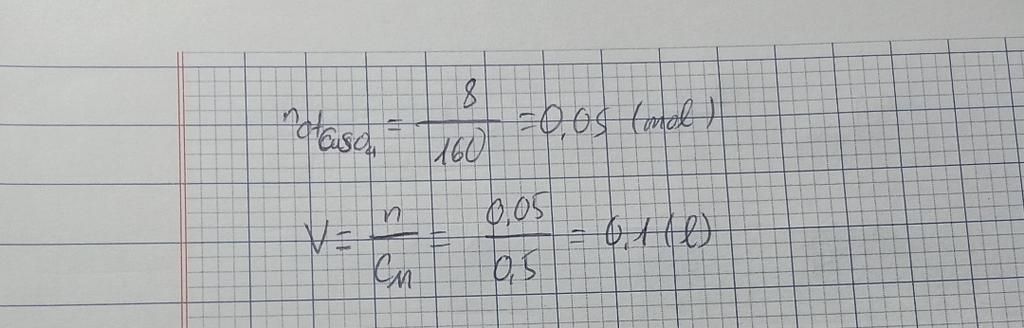 n ct CuSO₄ = 8/160 = 0,05 (mol)
V = n/C_M = 0,05/0,5 = 0,1 (l)